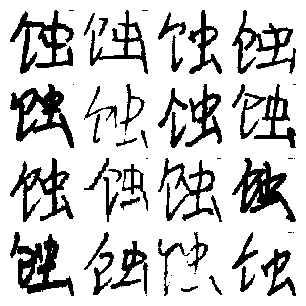 蚀蚀蚀蚀
蚀蚀蚀蚀
蚀蚀蚀蚀
蚀蚀蚀蚀